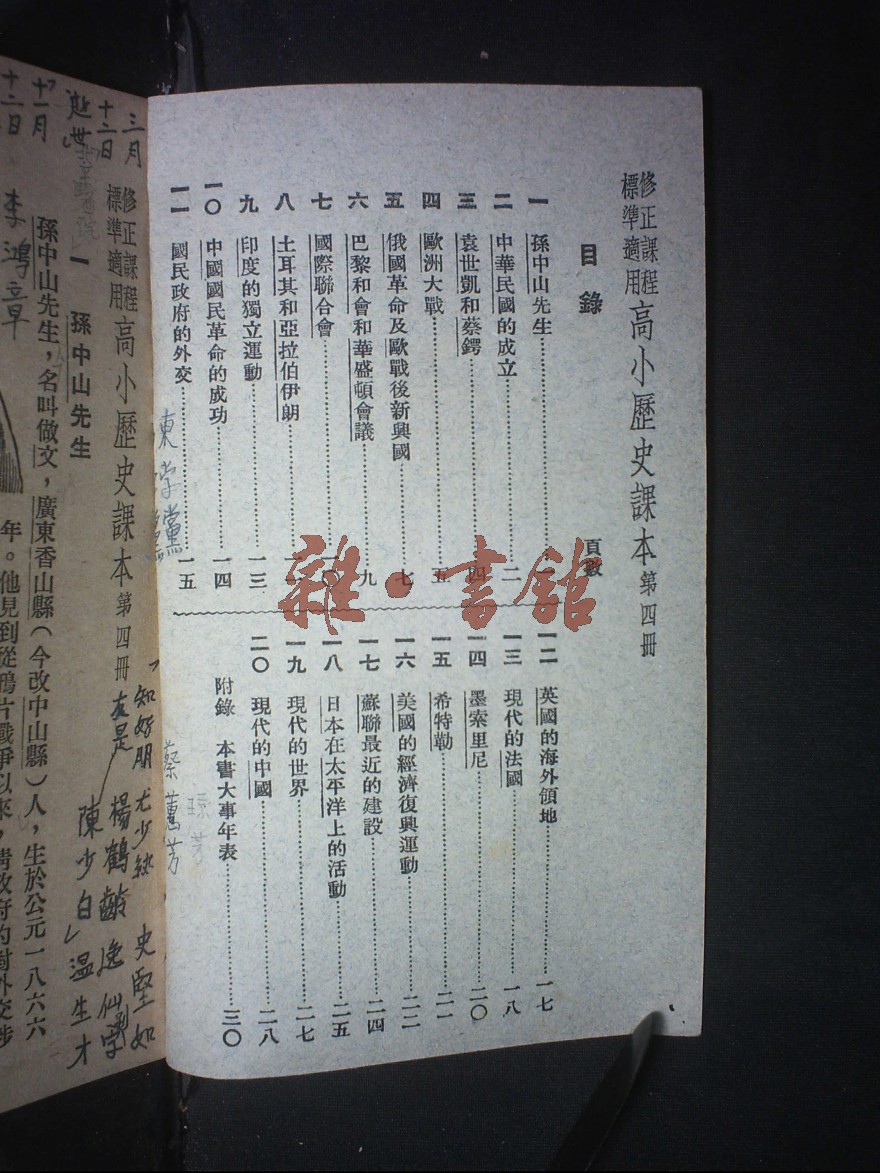 修正課程
標準適用
高小歷史課本 第四冊
目錄
頁數
一 孫中山先生
二 中華民國的成立 二
三 袁世凱和蔡鍔 四
四 歐洲大戰 五
五 俄國革命及歐戰後新興國 七
六 巴黎和會和華盛頓會議 九
七 國際聯合會 一〇
八 土耳其和亞拉伯伊朗
九 印度的獨立運動 一三
一〇 中國國民革命的成功 一四
一一 國民政府的外交 一五
一二 英國的海外領地 一七
一三 現代的法國 一八
一四 墨索里尼 二〇
一五 希特勒 二一
一六 美國的經濟復興運動 二二
一七 蘇聯最近的建設 二四
一八 日本在太平洋上的活動 二五
一九 現代的世界 二七
二〇 現代的中國 二八
附錄 本書大事年表 三〇
雜·書館
蔡蕙芳
史堅如
知好朋
尤少紈
友是
楊鶴齡
逸仙
陳少白
溫生才
三月
十二日
逝世
修正課程
標準適用
高小歷史課本 第四冊
一 孫中山先生
孫中山先生，名叫做文，廣東香山縣（今改中山縣）人，生於公元一八六六
年。他見到從鴉片戰爭以來，清政府的對外交涉
十一月
十二日
李鴻章